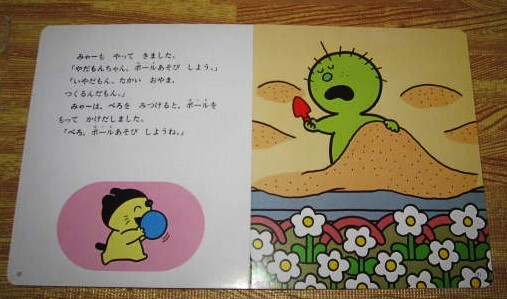 みゃーも やって きました。
「やだもんちゃん、ボールあそび しよう。」
「いやだもん。たかい おやま、
つくるんだもん。」
みゃーは、ぺろを みつけると、ボールを
もって かけだしました。
「ぺろ、ボールあそび しようね。」